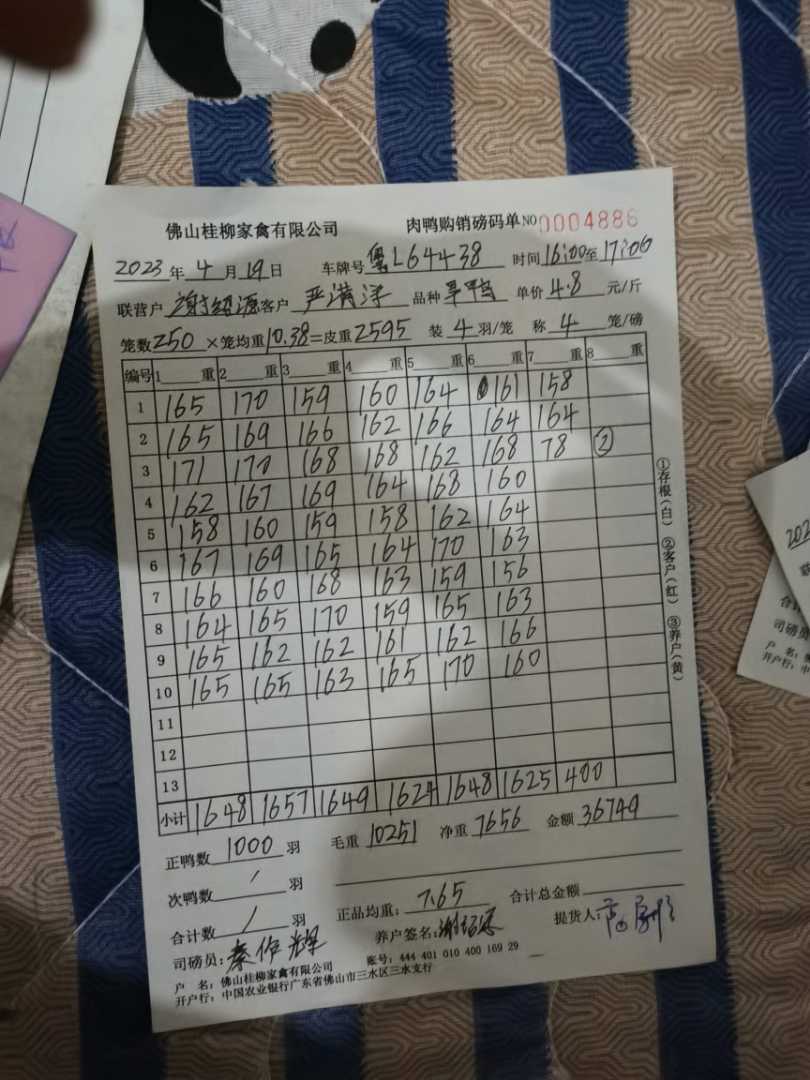 佛山桂柳家禽有限公司 肉鸭购销磅码单 NO 0004886
2023年4月19日 车牌号 粤L64438 时间16:00至17:06
联营户 谢绍源 客户 严满洋 品种 旱鸭 单价 4.8 元/斤
笼数250×笼均重10.38=皮重2595 装4羽/笼 称4笼/磅
编号 1 重 2 重 3 重 4 重 5 重 6 重 7 重 8 重
1 165 170 159 160 164 161 158
2 165 169 166 162 166 164 164
3 171 170 168 168 162 168 78 ②
4 162 167 169 164 168 160
5 158 160 159 158 162 164
6 167 169 165 164 170 163
7 166 160 168 163 159 156
8 164 165 170 159 165 163
9 165 162 162 161 162 166
10 165 165 163 165 170 160
11
12
13
小计 1648 1657 1649 1624 1648 1625 400
①存根(白) ②客户(红) ③养户(黄)
正鸭数 1000 羽 毛重 10251 净重 7656 金额 36749
次鸭数 / 羽
合计数 / 羽 正品均重: 7.65 合计总金额
司磅员: 秦作辉 养户签名: 谢绍源 提货人:
户 名: 佛山桂柳家禽有限公司 账号: 444 401 010 400 169 29
开户行: 中国农业银行广东省佛山市三水区三水支行